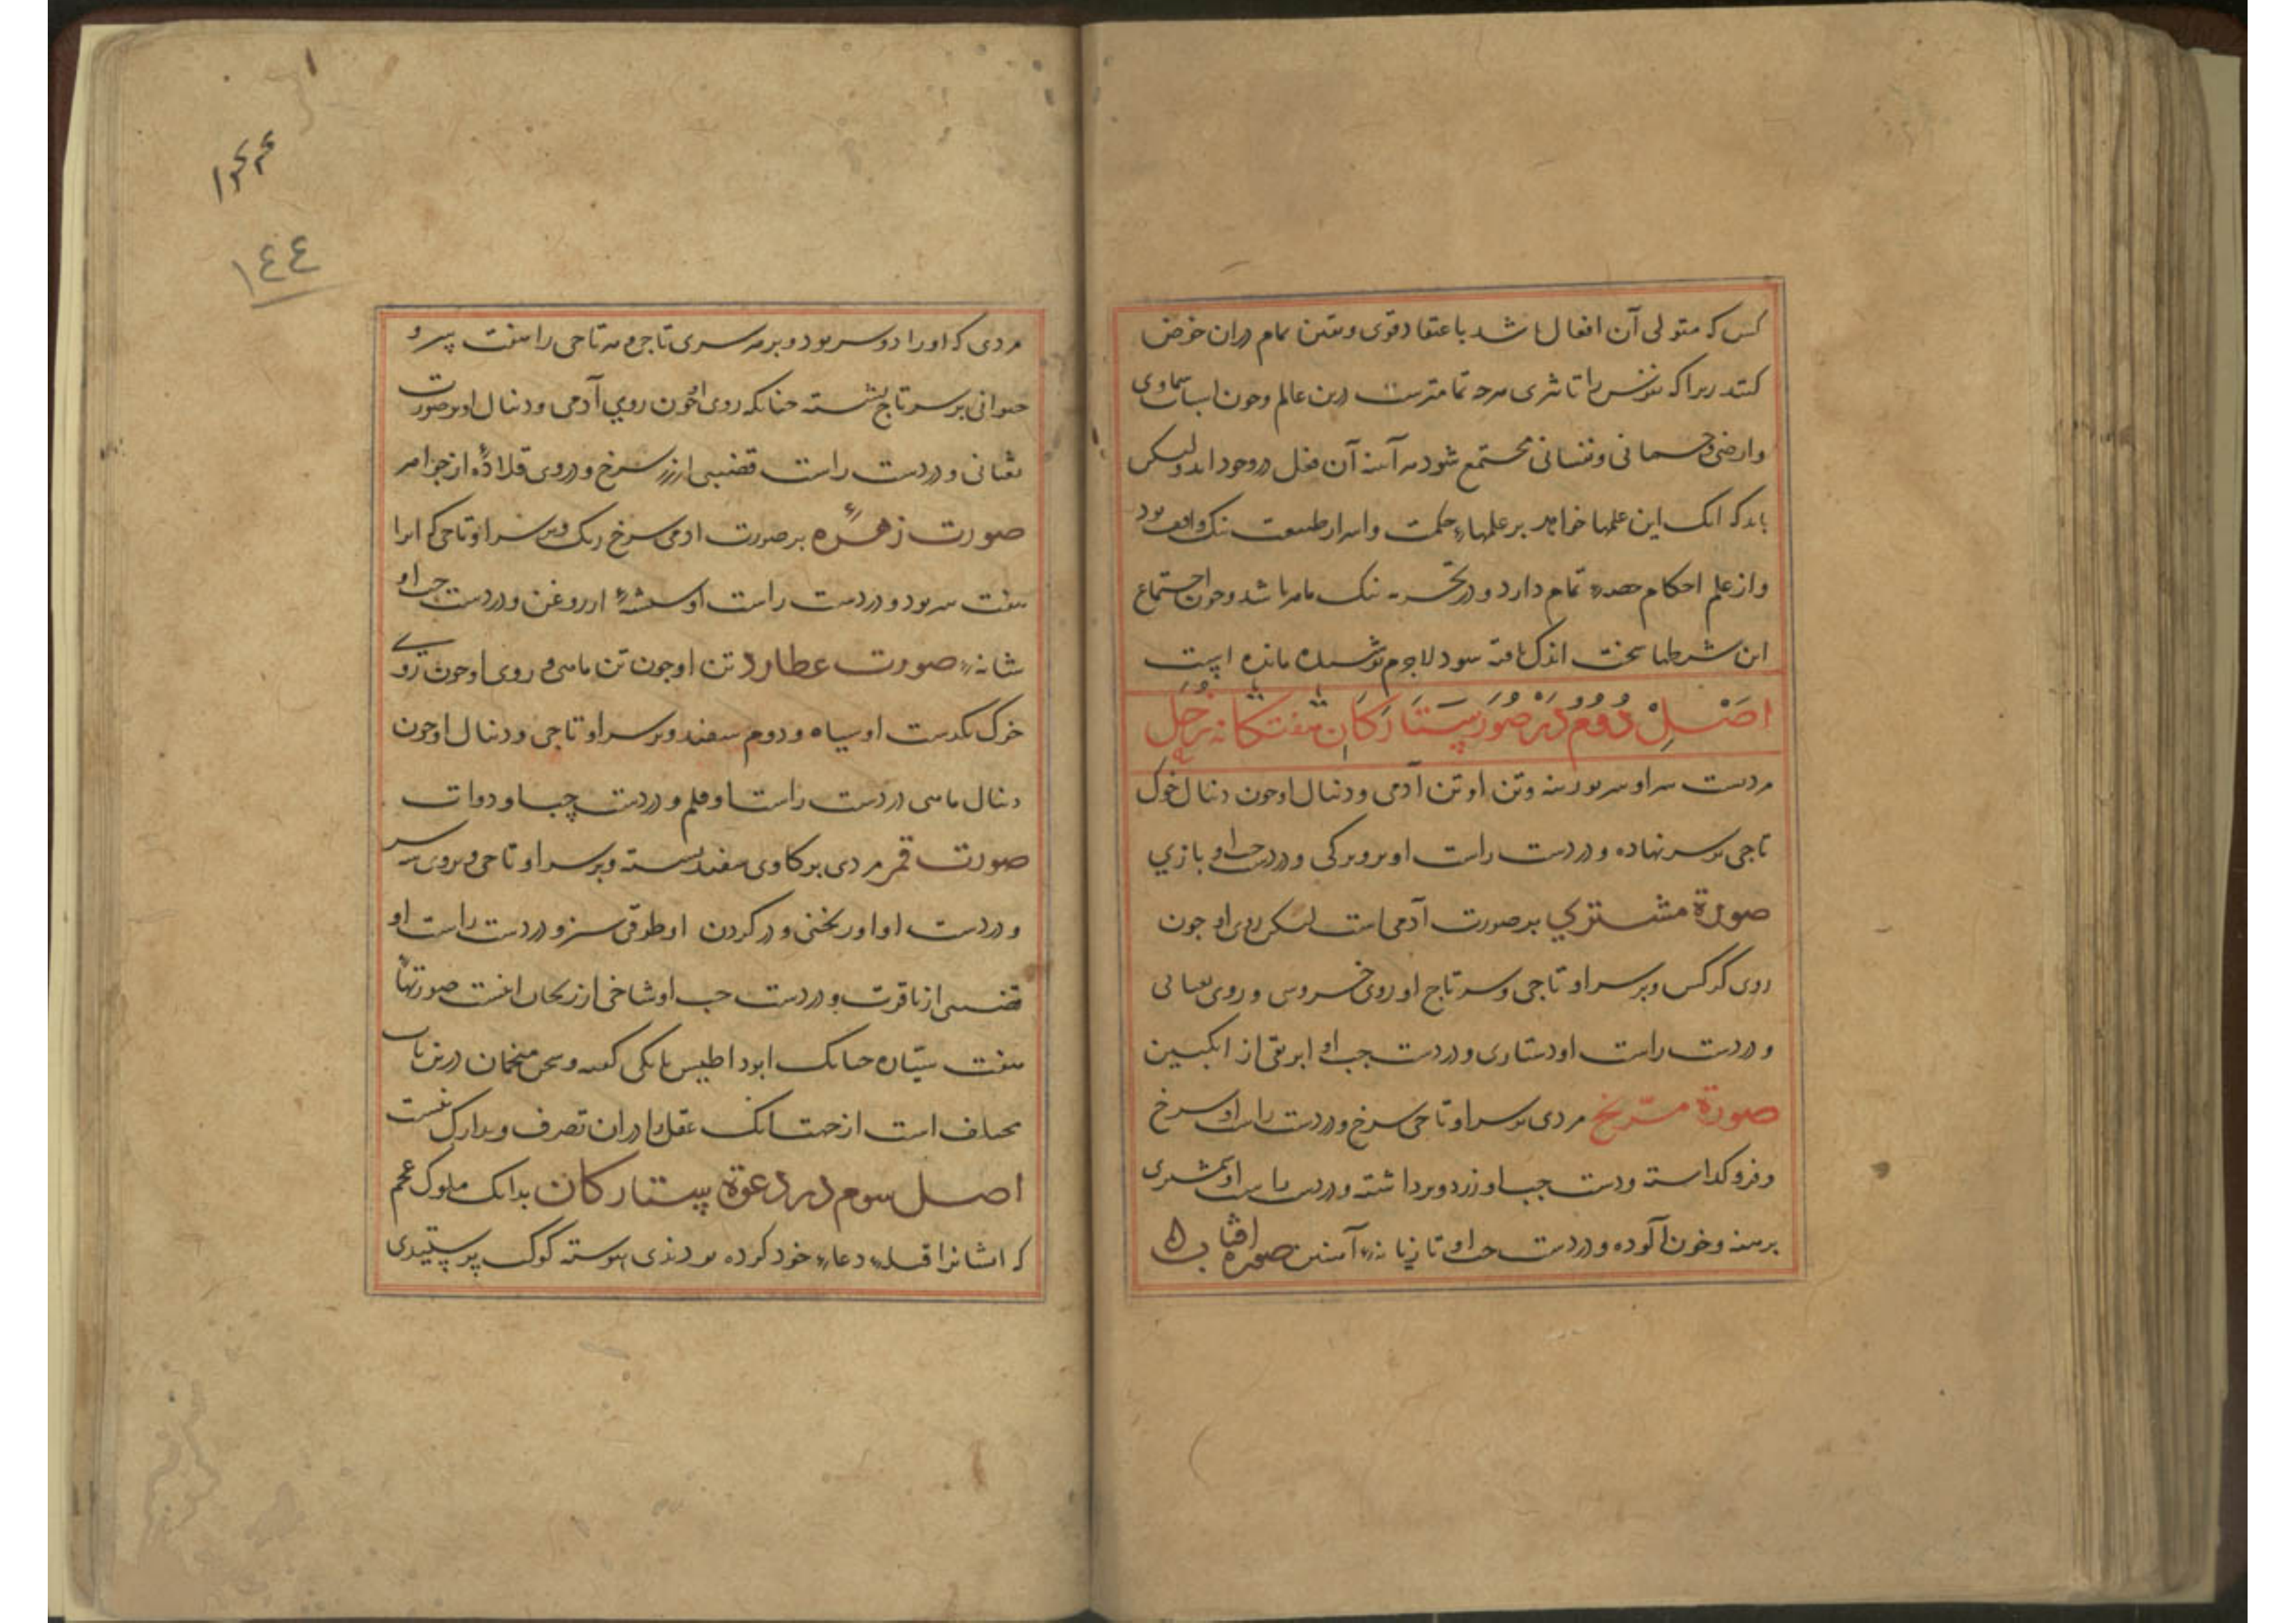 کس که متولی آن افعال باشد باعتقاد قوی ویقین تمام دران خوض
کند زیرا که نفوس را تاثری هرچه تمامترست درین عالم وچون اسباب سماوی
وارضی وجسمانی ونفسانی مجتمع شود هر آینه آن فعل دروجود اید ولیکن
باید که انک این علمها خواهد بر علمهاء حکمت واسرار طبیعت نیک واقف بود
واز علم احکام حصهٔ تمام دارد ودر تجربه نیک ماهر باشد وچون اجتماع
این شرطها سخت اندک یافته شود لاجرم پوشیده مانده است
اصل دوم در صور ستارکان هفتکانه زحل
مردیست سر او سر بوزینه وتن او تن آدمی ودنبال او چون دنبال خوک
تاجی بر سر نهاده ودر دست راست او پرویزکی ودر دست چپ او بازي
صورة مشتري بر صورت آدمی است لیکن روی او چون
روی کرکس وبر سر او تاجی وبر سر تاج او روی خروس وروی ثعبانی
ودر دست راست او دستاری ودر دست چپ او ابریقی از ابکینه
صورة مریخ مردی بر سر او تاجی سرخ ودر دست راست او سرخ
وفروکذاسته ودست چپ او زرد وبرداشته ودر دست راست او شمشیری
برهنه وخون آلوده ودر دست چپ او تازیانهٔ آهنین صورة افتاب
مردی که اورا دو سر بود وبر هر سری تاجی وهر تاجی را هفت سرو
حیوانی بر سر تاج نشسته چنانکه روی او چون روي آدمی ودنبال او بر صورت
ثعبانی ودر دست راست قضیبی از زر سرخ ودر وی قلادهٔ از جواهر
صورت زهره بر صورت ادمی سرخ رنک وبر سر او تاجی که انرا
هفت سر بود ودر دست راست او شیشهٔ از روغن ودر دست چپ او
شانهٔ صورت عطارد تن او چون تن ماهی وروی او چون روی
خوک یکدست او سیاه ودوم سفید وبر سر او تاجی ودنبال او چون
دنبال ماهی در دست راست او قلم ودر دست چپ او دوات
صورت قمر مردی بر کاوی سفید نشسته وبر سر او تاجی
ودر دست او اورنجنی ودر کردن او طوقی سبز ودر دست راست او
قضیبی از یاقوت ودر دست چپ او شاخی از ریحان اینست صورتهاء
هفت سیاره چنانک ابوداطیس بابکی کفته وسخن منجمان درین باب
مختلف است از جهت انک عقل را دران تصرف وتدارک نیست
اصل سوم در دعوة ستارکان بدانک ملوک عجم
که ایشانرا قبلهٔ دعاء خود کرده بودندی پیوسته کوکب پرستیدی
١٤٤